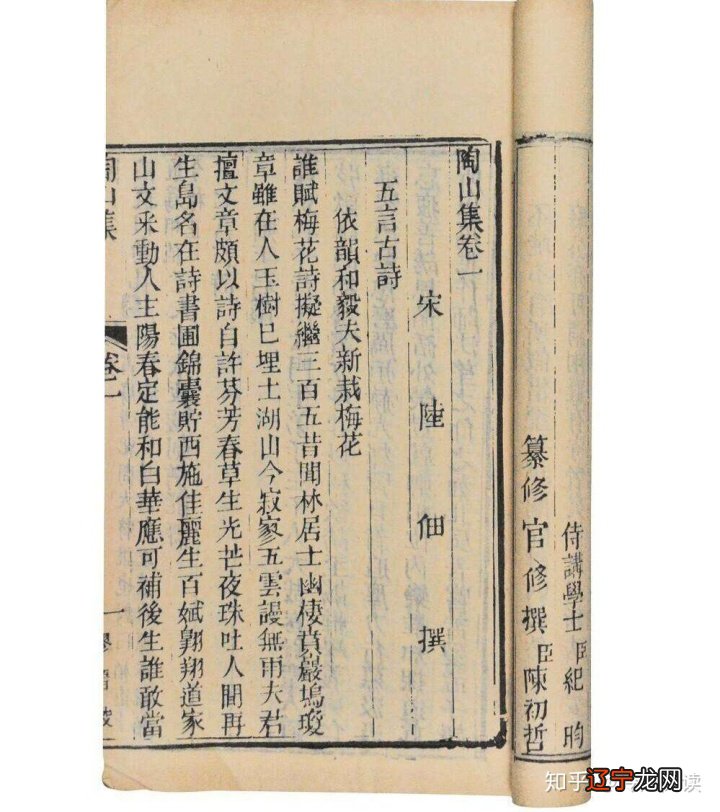 侍講學士臣紀昀
纂修官修撰臣陳初哲
陶山集卷一
宋陸佃撰
五言古詩
依韻和毅夫新栽梅花
誰賦梅花詩擬繼三百五昔聞林居士幽棲賁巖塢瓊
章雖在人玉樹巳埋土湖山今寂寥五雲謾無雨夫君
擅文章頗以詩自許芬芳春草生光芒夜珠吐人間再
生島名在詩書圃錦囊貯西施佳麗生百翱翔道家
山文采動人主陽春定能和白華應可補後生誰敢當
陶山集 卷一 一
知乎
辽宁龙网
读